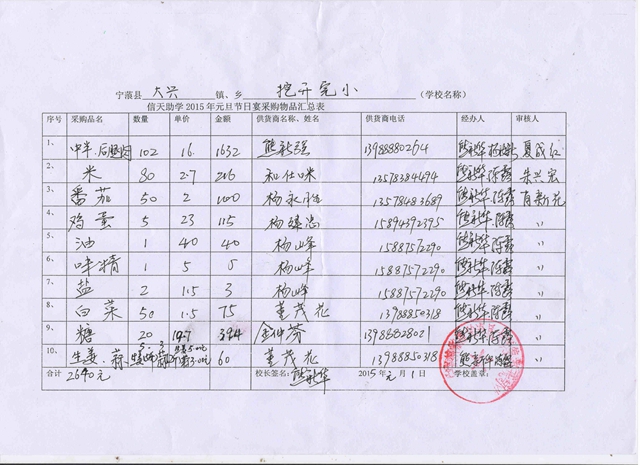 宁蒗县 大兴 镇、乡 挖开完小 （学校名称）
信天助学2015年元旦节日宴采购物品汇总表
序号 采购品名 数量 单价 金额 供货商名称、姓名 供货商电话 经办人 审核人
1、 中羊.后腿肉 102 16. 1632 熊新强 13988880264 熊新华 夏成红
2、 米 80 2.7 216 和仕味 13578384494 熊新华.陈露 朱兴宏
3、 番茄 50 2 100 13578483689 熊新华.陈露
4、 鸡蛋 5 23 115 15894392395 熊新华.陈露 〃
5、 油 1 40 40 杨山峰 15887572290 熊新华.陈露 〃
6、 味精 1 5 5 杨山峰 15887572290 熊新华.陈露 〃
7、 盐 2 1.5 3 杨山峰 15887572290 熊新华.陈露 〃
8、 白菜 50 1.5 75 董茂花 13988850318 熊新华.陈露 〃
9、 糖 20 19.7 394 金仲芬 熊新华.陈露 〃
10、 生姜、蒜 60 董茂花 13988850318 熊新华 〃
合计 2640元 校长签名： 熊新华 2015年元月1日 学校盖章：